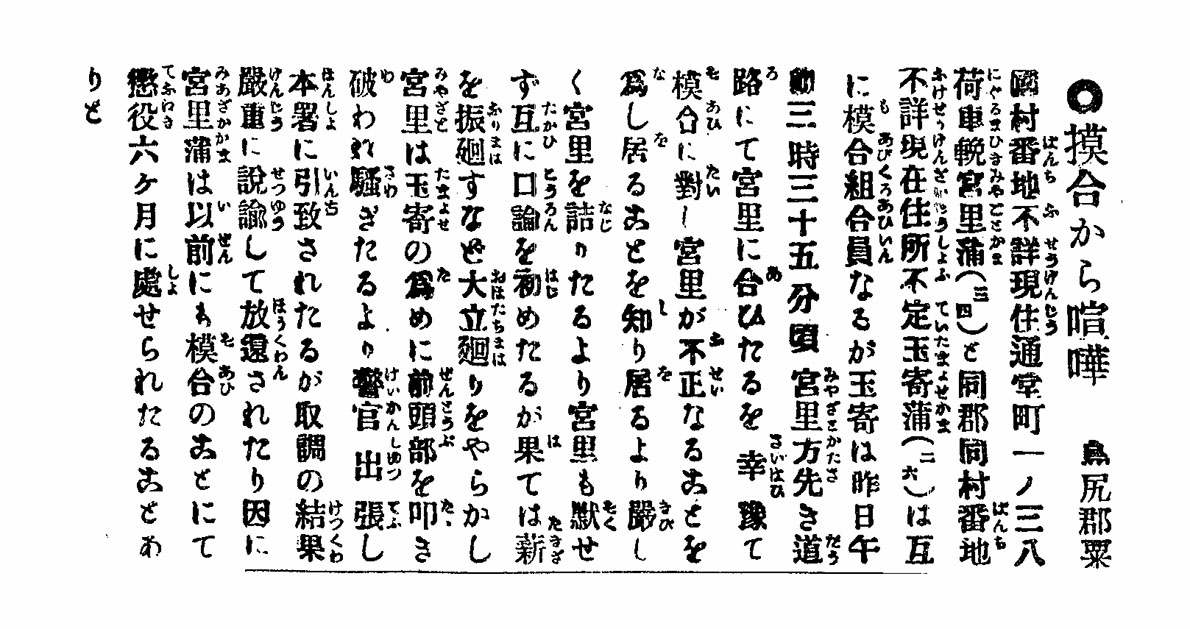 ◎摸合から喧嘩　島尻郡粟
國村番地不詳現住通堂町一ノ三八
荷車輓宮里蒲(四三)と同郡同村番地
不詳現在住所不定玉寄蒲(二六)は互
に模合組合員なるが玉寄は昨日午
前三時三十五分頃宮里方先き道
路にて宮里に合ひたるを幸豫て
模合に對し宮里が不正なるおとを
爲し居るおとを知り居るより嚴し
く宮里を詰りたるより宮里も默せ
ず互に口論を初めたるが果ては薪
を振廻すなど大立廻りをやらかし
宮里は玉寄の爲めに前頭部を叩き
破わり騒ぎたるより警官出張し
本署に引致されたるが取調の結果
嚴重に説諭して放還されたり因に
宮里蒲は以前にも模合のおとにて
懲役六ヶ月に處せられたるおとあ
りと